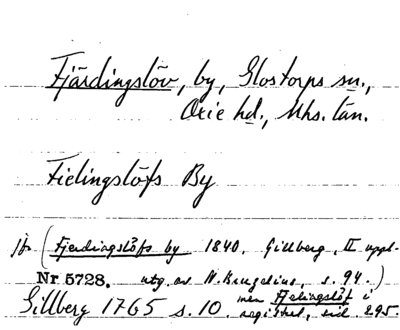 Fjärdingslöv, by, Glostorps sn.,
Oxie hd., Mhs. län.
Fielingslöfs By
jfr (Fjerdingslöfs by 1840. Gillberg, II uppl.
Nr. 5728. utg. av N. s. 94.)
Gillberg 1765 s. 10. men Fjelingslöf i
registret, sid. 295.